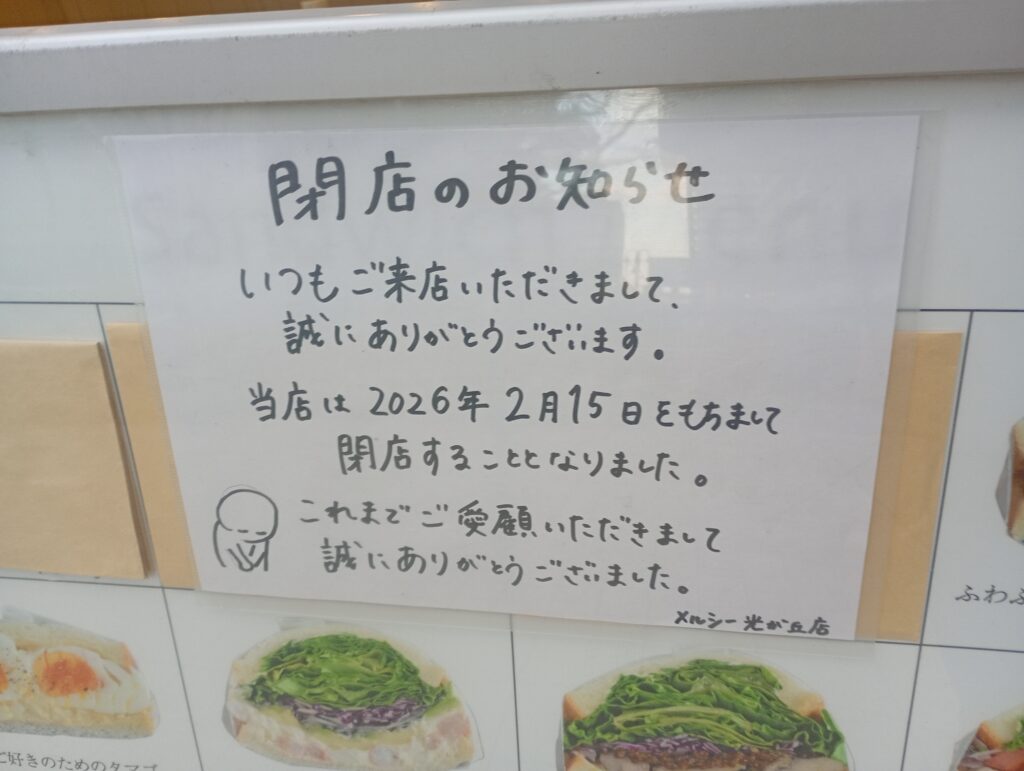 閉店のお知らせ
いつもご来店いただきまして、
誠にありがとうございます。
当店は2026年2月15日をもちまして
閉店することとなりました。
これまでご愛顧いただきまして
誠にありがとうございました。
メルシー光が丘店
ふわふ
好きのためのタマゴ